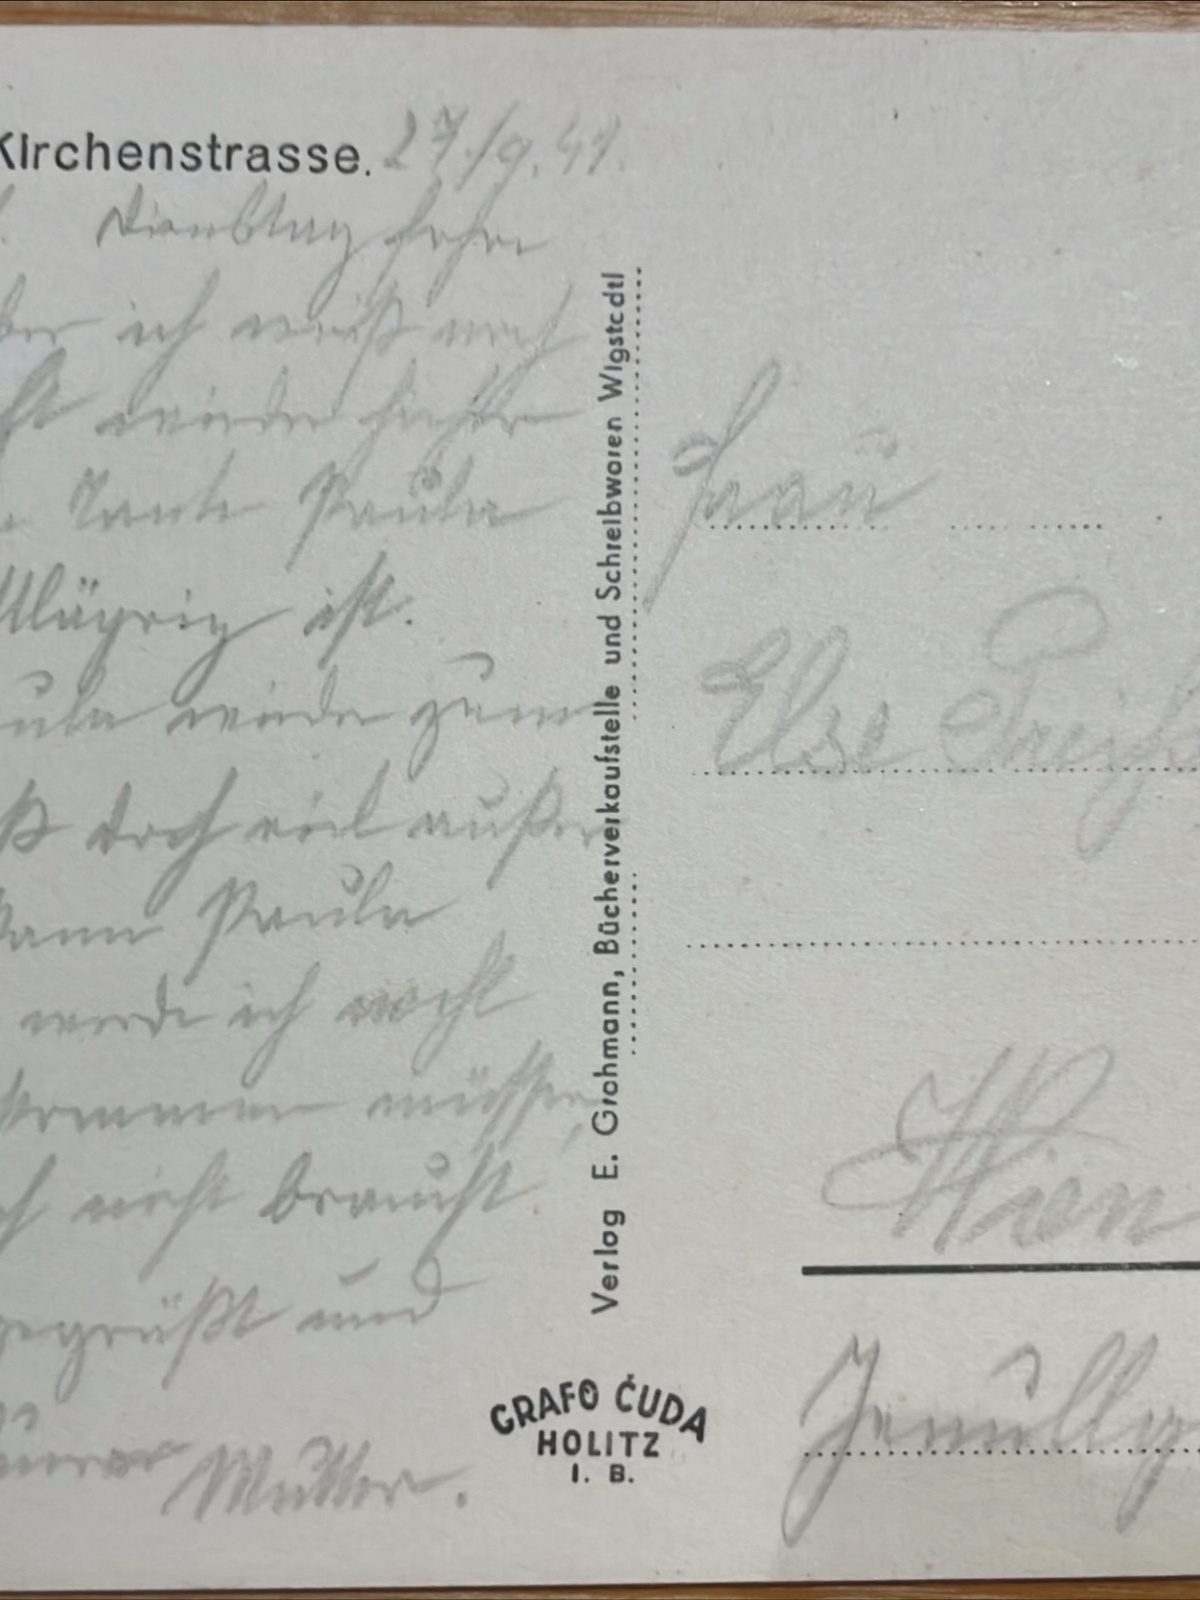 Kirchenstrasse. 27./9.41.
Dienstag fahre
ber ich muß noch
wieder
Tante Paula
ttlägrig ist.
ula wieder zum
ß doch viel außer
kann Paula
werde ich nicht
kommen müssen,
ch nicht braucht.
gegrüßt und
Mutter.
Verlag E. Grohmann, Bücherverkaufstelle und Schreibwaren Wigstadtl
GRAFO ČUDA
HOLITZ
I. B.
Frau
Else
Wien